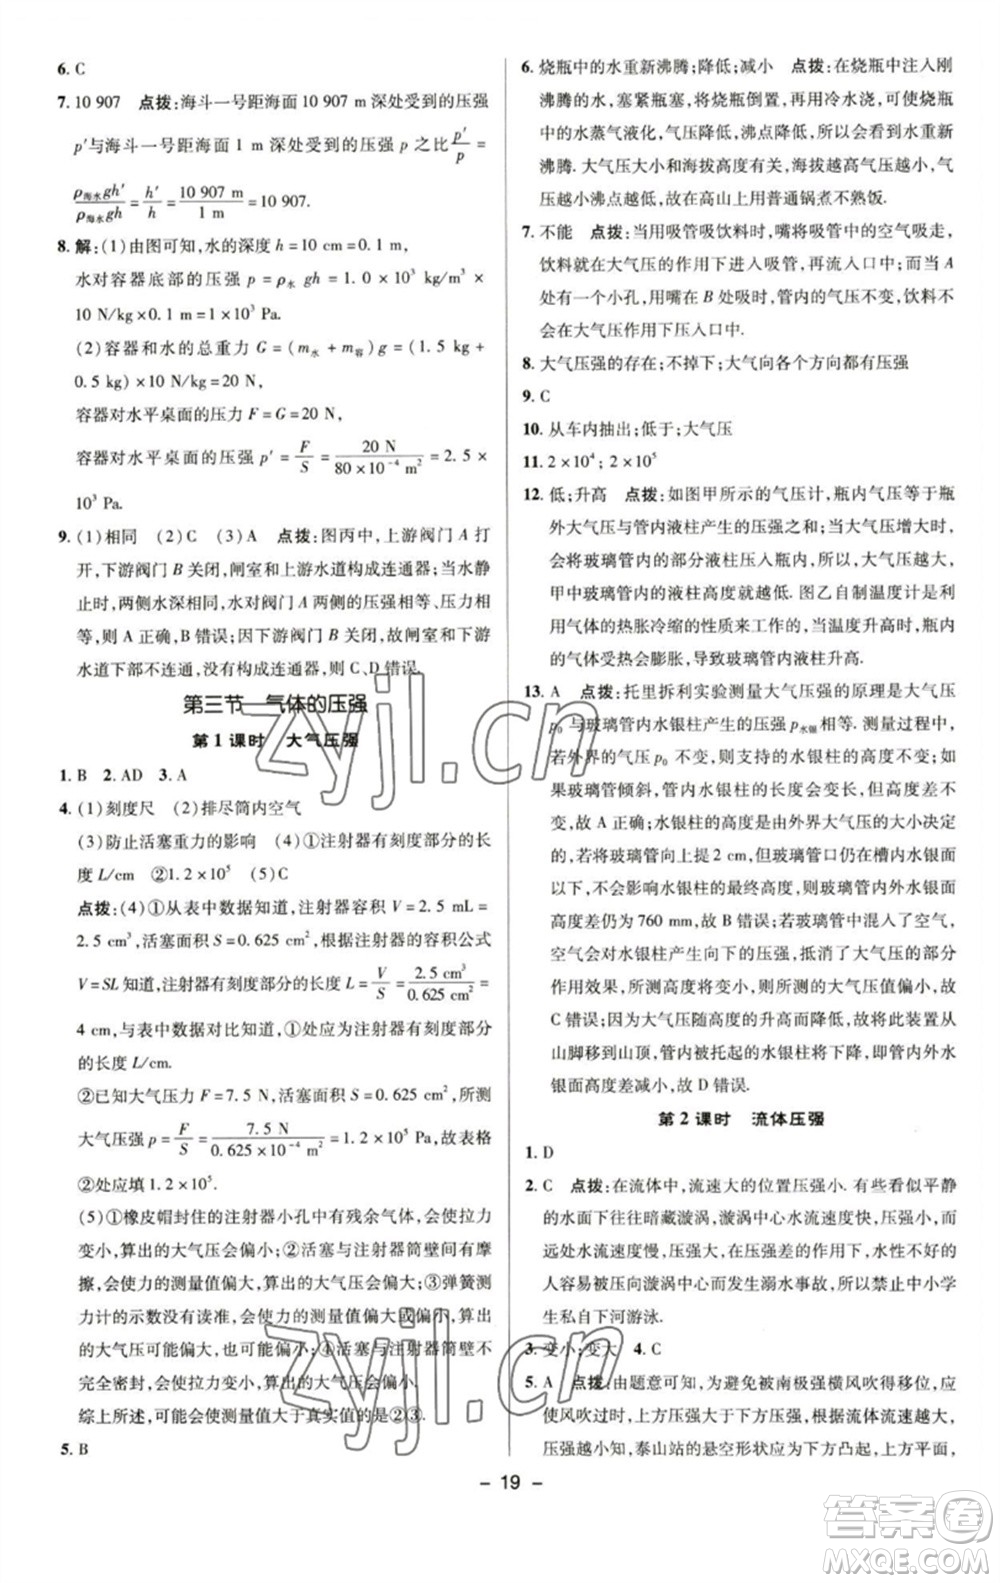 6. C
7. 10 907　点拨:海斗一号距海面 10 907 m 深处受到的压强
p′与海斗一号距海面 1 m 深处受到的压强 p 之比 p′/p =
ρ海水gh′/ρ海水gh = h′/h = 10 907 m/1 m = 10 907.
8. 解:(1)由图可知,水的深度 h=10 cm=0.1 m,
水对容器底部的压强 p=ρ水 gh=1×10³ kg/m³×
10 N/kg×0.1 m=1×10³ Pa.
(2)容器和水的总重力 G=(m水+m容)g=(1.5 kg+
0.5 kg)×10 N/kg=20 N,
容器对水平桌面的压力 F=G=20 N,
容器对水平桌面的压强 p′=F/S=20 N/80×10⁻⁴ m²=2.5×
10³ Pa.
9. (1)相同　(2)C　(3)A　点拨:图丙中,上游阀门 A 打
开,下游阀门 B 关闭,闸室和上游水道构成连通器;当水静
止时,两侧水深相同,水对阀门 A 两侧的压强相
等,则 A 正确,B 错误;因下游阀门 B 关闭,故闸室和下游
水道下部不连通,没有构成连通器,则 C、D 错误.
第三节　气体的压强
第 1 课时　大气压强
1. B　2. AD　3. A
4. (1)刻度尺　(2)排尽筒内空气
(3)防止活塞重力的影响　(4)①注射器有刻度部分的长
度 L/cm　②1.2×10⁵　(5)C
点拨:(4)①从表中数据知道,注射器容积 V=2.5 mL=
2.5 cm³,活塞面积 S=0.625 cm²,根据注射器的容积公式
V=SL 知道,注射器有刻度部分的长度 L=V/S=2.5 cm³/0.625 cm²=
4 cm,与表中数据对比知道,①处应为注射器有刻度部分
的长度 L/cm.
②已知大气压力 F=7.5 N,活塞面积 S=0.625 cm²,所测
大气压强 p=F/S=7.5 N/0.625×10⁻⁴ m²=1.2×10⁵ Pa,故表格
②处应填 1.2×10⁵.
(5)①橡皮帽封住的注射器小孔中有残余气体,会使拉力
变小,算出的大气压会偏小;②活塞与注射器筒壁间有摩
擦,会使力的测量值偏大,算出的大气压会偏大;③弹簧测
力计的示数没有读准,会使力的测量值偏大或偏小,算出的
大气压可能偏大,也可能偏小;④活塞与注射器筒壁不
完全密封,可使拉力变小,会使算出的大气压偏小.
综上所述,可能会使测量值大于真实值的是②③.
5. B
6. 烧瓶中的水重新沸腾;降低;减小　点拨:在烧瓶中注入刚
沸腾的水,塞紧瓶塞,将瓶倒置,再用冷水浇,可使烧瓶
中的水蒸气液化,气压降低,沸点降低,所以会看到水重新
沸腾.大气压大小和海拔高度有关,海拔越高气压越小,气
压越小沸点越低,故在高山上用普通锅煮不熟饭.
7. 不能　点拨:当用吸管吸饮料时,嘴将吸管中的空气吸走,
饮料在大气压的作用下进入吸管,再流入口中;而当 A
处有一个小孔,用嘴在 B 处吸时,管内的气压不变,饮料不
会在大气压作用下压入口中.
8. 大气压强的存在;不掉下;大气向各个方向都有压强
9. C
10. 从车内抽出;低于;大气压
11. 2×10⁴;2×10⁵
12. 低;升高　点拨:如图甲所示的气压计,瓶内气压等于瓶
外大气压与管内液柱产生的压强之和;当大气压增大时,
会将玻璃管内的部分液柱压入瓶内,所以,大气压越大,
甲中玻璃管内的液柱就越低.图乙自制温度计是利
用气体的热胀冷缩的性质来工作的,当温度升高时,瓶内
的气体受热会膨胀,导致玻璃管内液柱升高.
13. A　点拨:托里拆利实验测量大气压强的原理是大气压
p₀与玻璃管内水银柱产生的压强 p水银相等.测量过程中,
若外界的气压 p₀ 不变,则支持的水银柱的高度不变;如
果玻璃管倾斜,管内水银柱的长度会变长,但高度不变,
故 A 正确;水银柱高度是由外界大气压的大小决定
的,若将玻璃管向上提 2 cm,但玻璃管口仍在槽内水银面
以下,不会影响水银柱的最终高度,管内外水银面
高度差仍为 760 mm,故 B 错误;若玻璃管中混入了空气,
空气会对水银柱产生向下的压强,抵消了大气压的部分
作用效果,所测得大气压值偏小,故
C 错误;因为大气压随高度的升高而降低,故将此装置从
山脚移到山顶,管内被托起的水银柱将下降,即管内外水
银面高度差减小,故 D 错误.
第 2 课时　流体压强
1. D
2. C　点拨:在流体中,流速大的位置压强小.有些看似平静
的水面下往往暗藏漩涡,漩涡中心水流速度快,压强小,而
远处水流速度慢,压强大,在压强差的作用下,水性不好的
人容易被压向漩涡中心而发生溺水事故,所以严禁中小学
生私自下河游泳.
3. 变小;变大　4. C
5. A　点拨:由题意可知,为避免被南极强横风吹得移位,应
使风吹过时,上方压强大于下方压强,根据流体流速越大,
压强越小知,泰山站的悬空形状应为下方凸起,上方平面,
– 19 –
zyjl.cn
zyjl.cn
答案圈
MXQE.COM